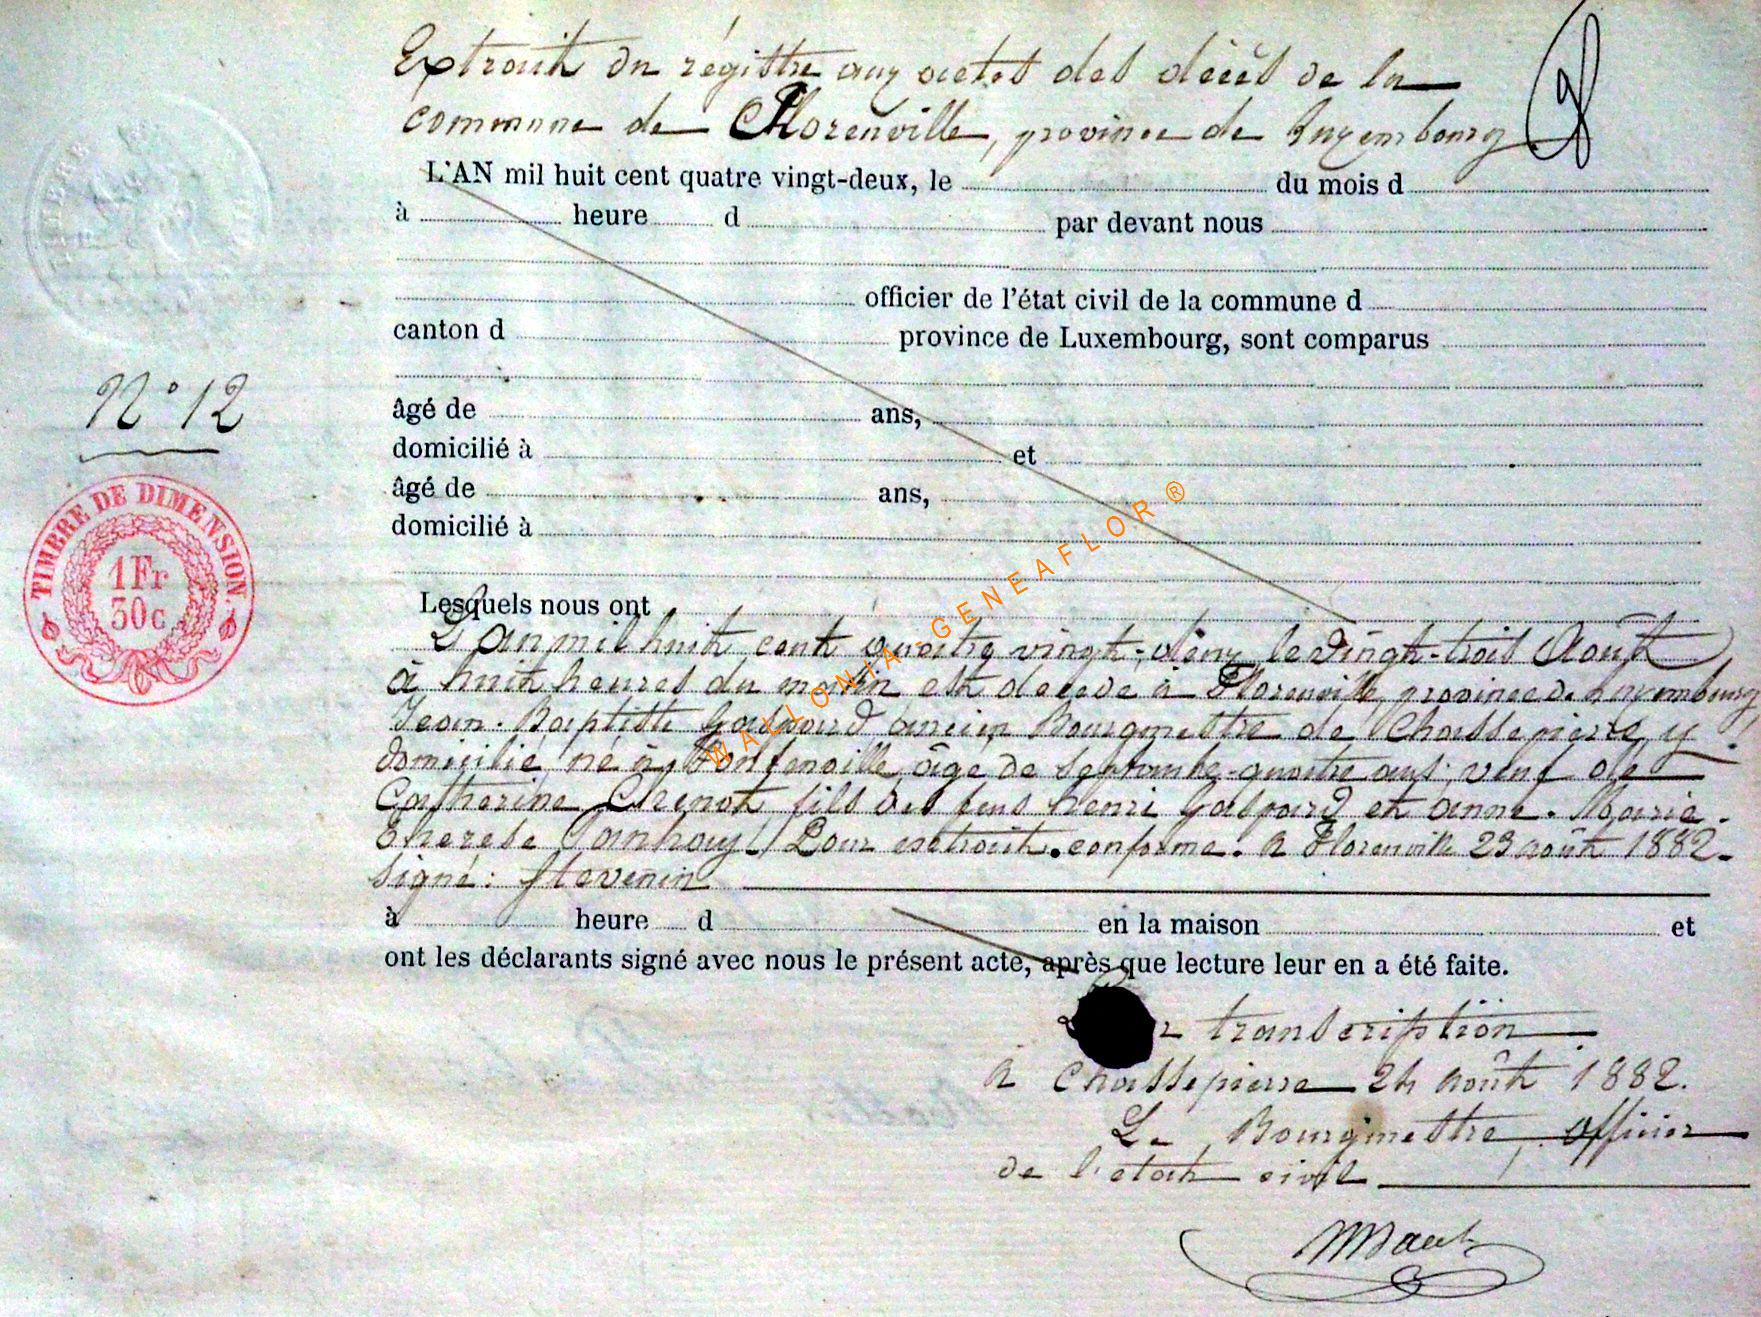 Extrait du régistre aux actes des décès de la
commune de Florenville, province de Luxembourg
L'AN mil huit cent quatre vingt-deux, le du mois d
à heure d par devant nous
officier de l'état civil de la commune d
canton d province de Luxembourg, sont comparus
N° 12
âgé de ans,
domicilié à et
âgé de ans,
domicilié à
TIMBRE DE DIMENSION
1 Fr
30 c
Lesquels nous ont
L'an mil huit cent quatre vingt-deux, le vingt-trois Août
à huit heures du matin est décédé à Florenville, province de Luxembourg
Jean-Baptiste Gaspard ancien Bourgmestre de Chassepierre, y
domicilié, né à Fontenoille, âgé de septante-quatre ans, veuf de
Catherine fils des feus henri Gaspard et anne-Marie
thérèse Pour extrait conforme. A Florenville 23 août 1882.
signé: Stevenin
WALLONIA-GENEAFLOR ®
à heure d en la maison et
ont les déclarants signé avec nous le présent acte, après que lecture leur en a été faite.
transcription
A Chassepierre 24 août 1882.
Le Bourgmestre, officier
de l'état civil